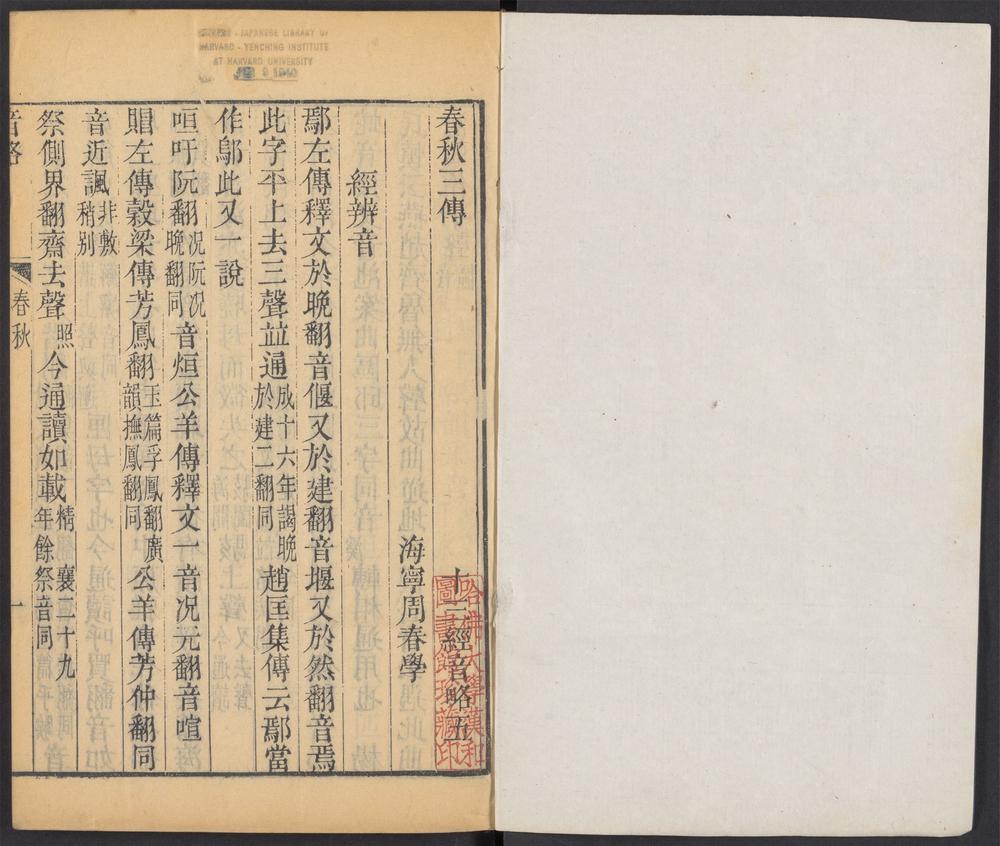 JAPANESE LIBRARY OF
HARVARD - YENCHING INSTITUTE
AT HARVARD UNIVERSITY
9 1940
春秋三傳 十三經音略五
海寧周春學
經辨音
鄢左傳釋文於晚翻音偃又於建翻音堰又於然翻音焉
此字平上去三聲竝通成十六年謁晚於建二翻同趙匡集傳云鄢當
作鄔此又一說
咺吁阮翻况阮况晚翻同音烜公羊傳釋文一音况元翻音喧
賵左傳穀梁傳芳鳳翻玉篇孚鳳翻廣韻撫鳳翻同公羊傳芳仲翻同
音近諷非敷稍别
祭側界翻齋去聲照今通讀如載精襄二十九年餘祭音同
音略 春秋 一
哈佛大學漢和圖書館珍藏印